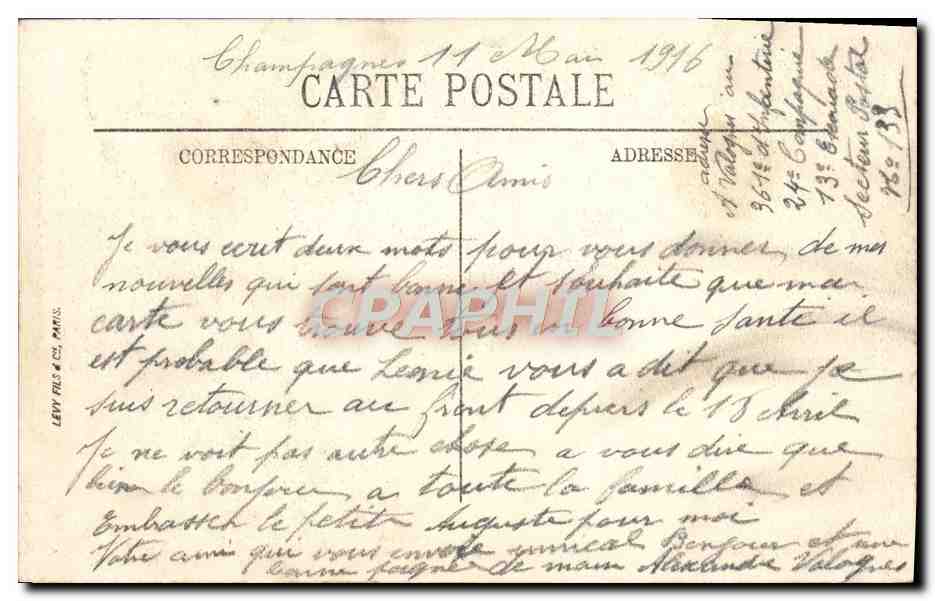 Champagnes 11 Mai 1916
CARTE POSTALE
CORRESPONDANCE
ADRESSE
adresse
A Valognes au
361e d'Infanterie
24e Compagnie
13e Escouade
Secteur Postal
No 139
Chers Amis
Je vous ecrit deux mots pour vous donner de mes
nouvelles qui sont bonne et souhaite que ma
carte vous trouve tous en bonne santé il
est probable que Leonie vous a dit que je
suis retourner au front depuis le 18 Avril
Je ne voit pas autre chose a vous dire que
bien le bonjour a toute la famille et
Embasser le petit Auguste pour moi
Votre ami qui vous envoie amical Bonjour et une
bonne poignée de main Alexandre Valognes
LEVY FILS & Cie, PARIS.
CPAPHIL